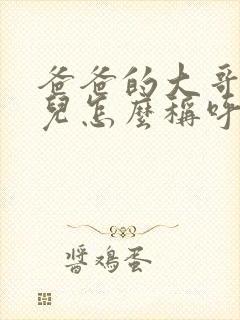 爸爸的大哥
兒怎麼稱呼
醬鸡蛋